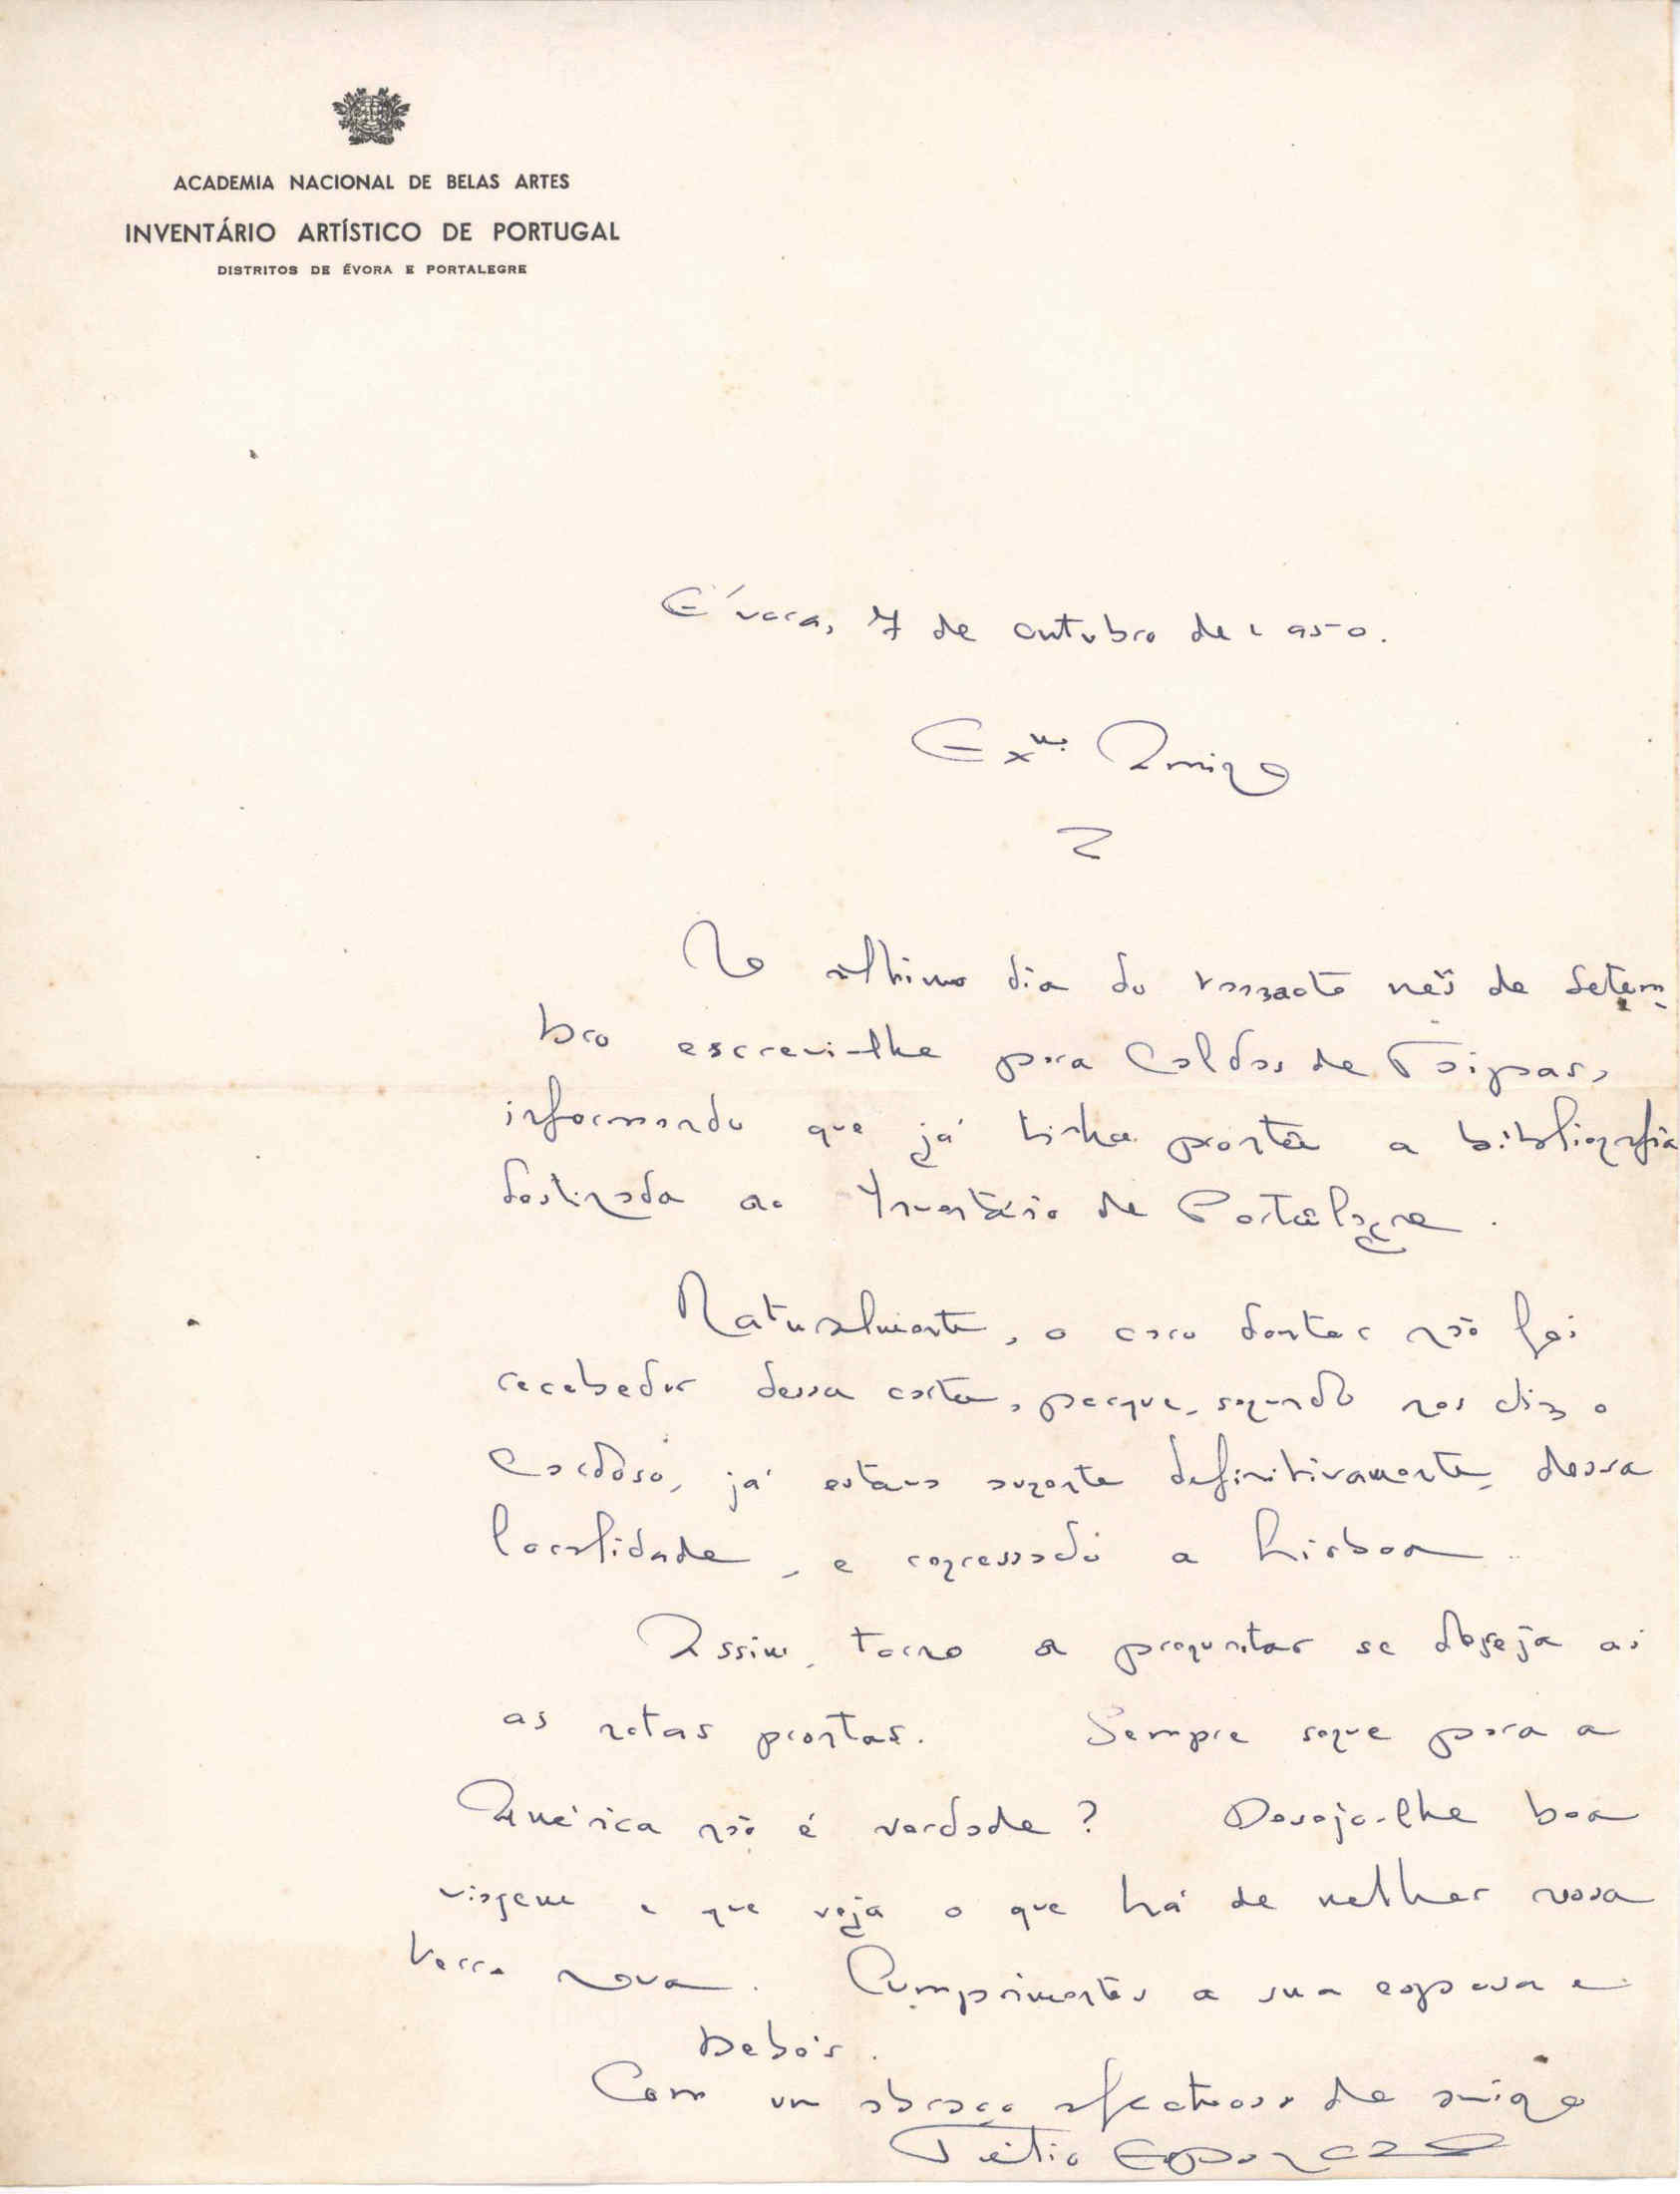 ACADEMIA NACIONAL DE BELAS ARTES
INVENTÁRIO ARTÍSTICO DE PORTUGAL
DISTRITOS DE ÉVORA E PORTALEGRE
Évora, 7 de outubro de 1950.
Exmo. Amigo
No último dia do mês de Setem-
bro escrevi-lhe para Caldas de Taipas,
informando que já tinha pronta a bibliografia
destinada ao Inventário de Portalegre.
Naturalmente, o caro doutor não foi
recebedor dessa carta, porque, segundo nos diz o
Cardoso, já estava ausente definitivamente, dessa
localidade, e regressado a Lisboa.
Assim, torno a preguntar se deseja aí
as notas prontas. Sempre segue para a
América não é verdade? Desejo-lhe boa
viagem e que veja o que há de melhor nessa
terra nova. Cumprimentos a sua esposa e
bebés.
Com um abraço afectuoso de amigo
Túlio Espanca